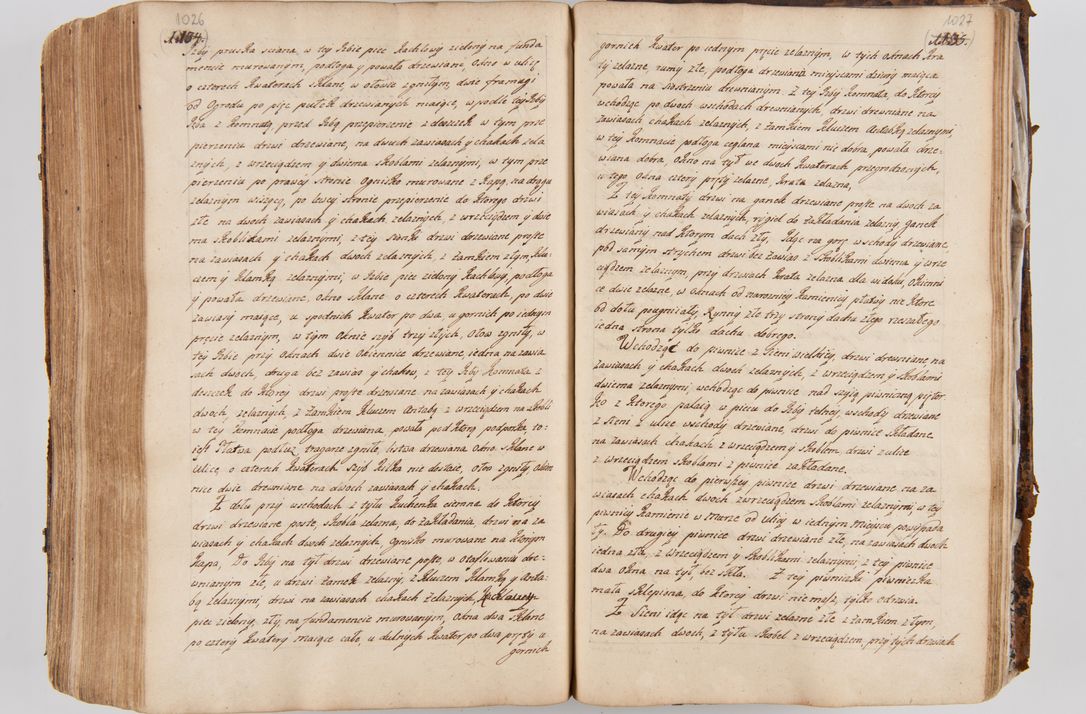 1026
1134.
Izby pruska sciana, w tey Izbie piec kachlowy zielony na funda
mencie murowanym, podłoga y powała drzewiane Okno w ulicę
o czterech kwaterach sklane, w ołowie zgniłym, dwie framugi
od Ogrodu po pięc pułek drzewianych maiące, wpodle tey Izby
Izba z komnatą, przed Izbą przepierzenie z deszczek w tym prze
pierzeniu drzwi drzewiane, na dwuch zawiasach y hakach żela
znych, z wrzeciądzem y dwiema skoblami żelaznymi, w tym prze
pierzeniu po prawey stronie Ognisko murowane z kapą, na drągu
żelaznym wiszący, po lewey stronie przepierzenie do którego drzwi
złe na dwoch zawiasach y hakach żelaznych, z wrzeciądzem y dwie
ma skoblikami żelaznymi, z tey sionki drzwi drzewiane proste
na zawiasach y hakach dwoch żelaznych, z zamkiem złym, klu
czem y klamką żelaznymi, w Izbie piec zielony kachlowy, podłoga
y powała drzewiane, okno sklane o czterech kwaterach, po dwie
zawiasy maiące, u spodnich kwater po dwa, u gornich po iednym
pręcie żelaznym, w tym oknie szyb trzy złych, ołow zgniły, w
tey Izbie przy oknach dwie okiennice drzewiane, iedna na zawia
sach dwoch, druga bez zawias y hakow, z tey Izby komnata z
deszczek do ktorey drzwi proste drzewiane na zawiasach y hakach
dwoch żelaznych, z zamkiem kluczem antabą z wrzeciądzem na skobli
w tey komnacie podłoga drzewiana, powała pod ktorą podpórka to
iest płatwa podłuż, tragarze zgniłe, listwa drzewiana okno sklane w
ulicę, o czterech kwaterach szyb kilka nie dostaie, ołow zgniły okien
nice dwie drewniane na dwoch zawiasach y hakach.
Z dołu przy wschodach z tyłu kuchenka ciemna do ktorey
drzwi drzewiane proste, skobla żelazna, do zakładania drzwi na za
wiasach y hakach dwoch żelaznych, ognisko murowane na ktorym
kapa, Do Izby na tył drzwi drzewiane proste, w otaflowaniu dre-
wnianym złe, u drzwi zamek żelazny, z kluczem klamką y anta-
bą żelaznymi, drzwi na zawiasach hakach żelaznych,
piec zielony, zły na fundamencie murowanym, okna dwa sklane
po cztery kwatery maiące cale, u dolnych kwater po dwa pręty u
gornich
1027
1135.
gornich kwater po iednym pręcie żelaznym, w tych oknach kra
ty żelazne, ramy złe, podłoga drzewiana mieyscami dziury maiąca
powała na siostrzeniu drewnianym. Z tey Izby komnata, do ktorey
wchodząc po dwoch wschodach drewnianych, drzwi drewniane na
zawiasach hakach żelaznych, z zamkiem kluczem antabką żelaznymi
w tey komnacie podłoga ceglana mieyscami nie dobra, powała drze-
wiana dobra, okno na tył we dwoch kwaterach przegrodzonych,
u tego okna cztery pręty żelazne, krata żelazna,
Z tey komnaty drzwi na ganek drzewiane proste na dwoch za
wiasach y hakach żelaznych, rygiel do zakładania żelazny, ganek
drzewiany nad ktorym dach zły, Idąc na gorę wschody drzewiane
pod samym strychem drzwi bez zawias z skoblikami dwiema y wrze
ciądzem żelaznym, przy drzwiach krata żelazna dla widoku, okienni
ce dwie żelazne, w oknach od narozniey kamienicy płatwy nie ktore
od dołu pougniały, Rynny złe trzy strony dachu złego rzeszałego
iedna strona tylko dachu dobrego.
Wchodząc do piwnice z Sieni wielkiey, drzwi drewniane na
zawiasach y hakach dwoch żelaznych, z wrzeciądzem y skoblami
dwiema żelaznymi, wchodząc do piwnice nad szyią piwniczną pięter
ko z ktorego palaią w piecu do Izby tylney, wschody drzewiane
z Sieni z ulice wschody drzewiane, drzwi do piwnice składane
na zawiasach hakach z wrzeciądzem y skoblem, drzwi z ulice
z wrzeciądzem skoblami z piwnice zakładane.
Wchodząc do pierwszey piwnice drzwi drzewiane na za
wiasach hakach dwoch z wrzeciądzem skoblami żelaznymi, w tey
piwnicy kamienie w murze od ulicy w iednym mieyscu powypada
ły. Do drugiey piwnice drzwi drzewiane złe, na zawiasach dwoch
iedna zła, z wrzeciądzem y skoblikami żelaznymi, z tey piwnice
dwa okna na tył, bez skła. Z tey piwniczki piwniczka
mała sklepiona, do ktorey drzwi niemasz, tylko odrzwia.
Z Sieni idąc na tył drzwi żelazne złe z zamkiem złym,
na zawiasach dwoch, z tyłu skobel z wrzeciądzem, przy tych drzwiach